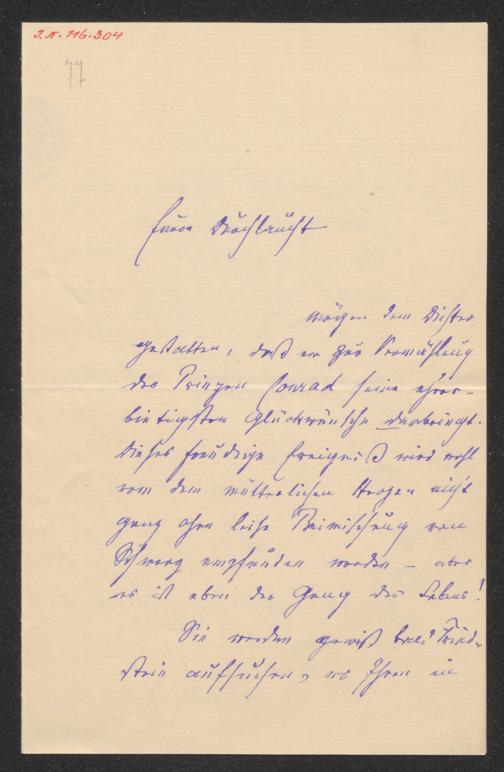 J.N. 116.304
77
Euere Durchlaucht
mögen dem Dichter
gestatten, daß er zur Vermählung
des Prinzen Conrad seine ehrer-
bietigsten Glückwünsche darbringt.
Dieses freudige Ereigniß wird wohl
von dem mütterlichen Herzen nicht
ganz ohne leise Beimischung von
Schmerz empfunden werden – aber
es ist eben der Gang des Lebens!
Sie werden gewiß bald Fried-
stein aufsuchen, wo Ihnen in